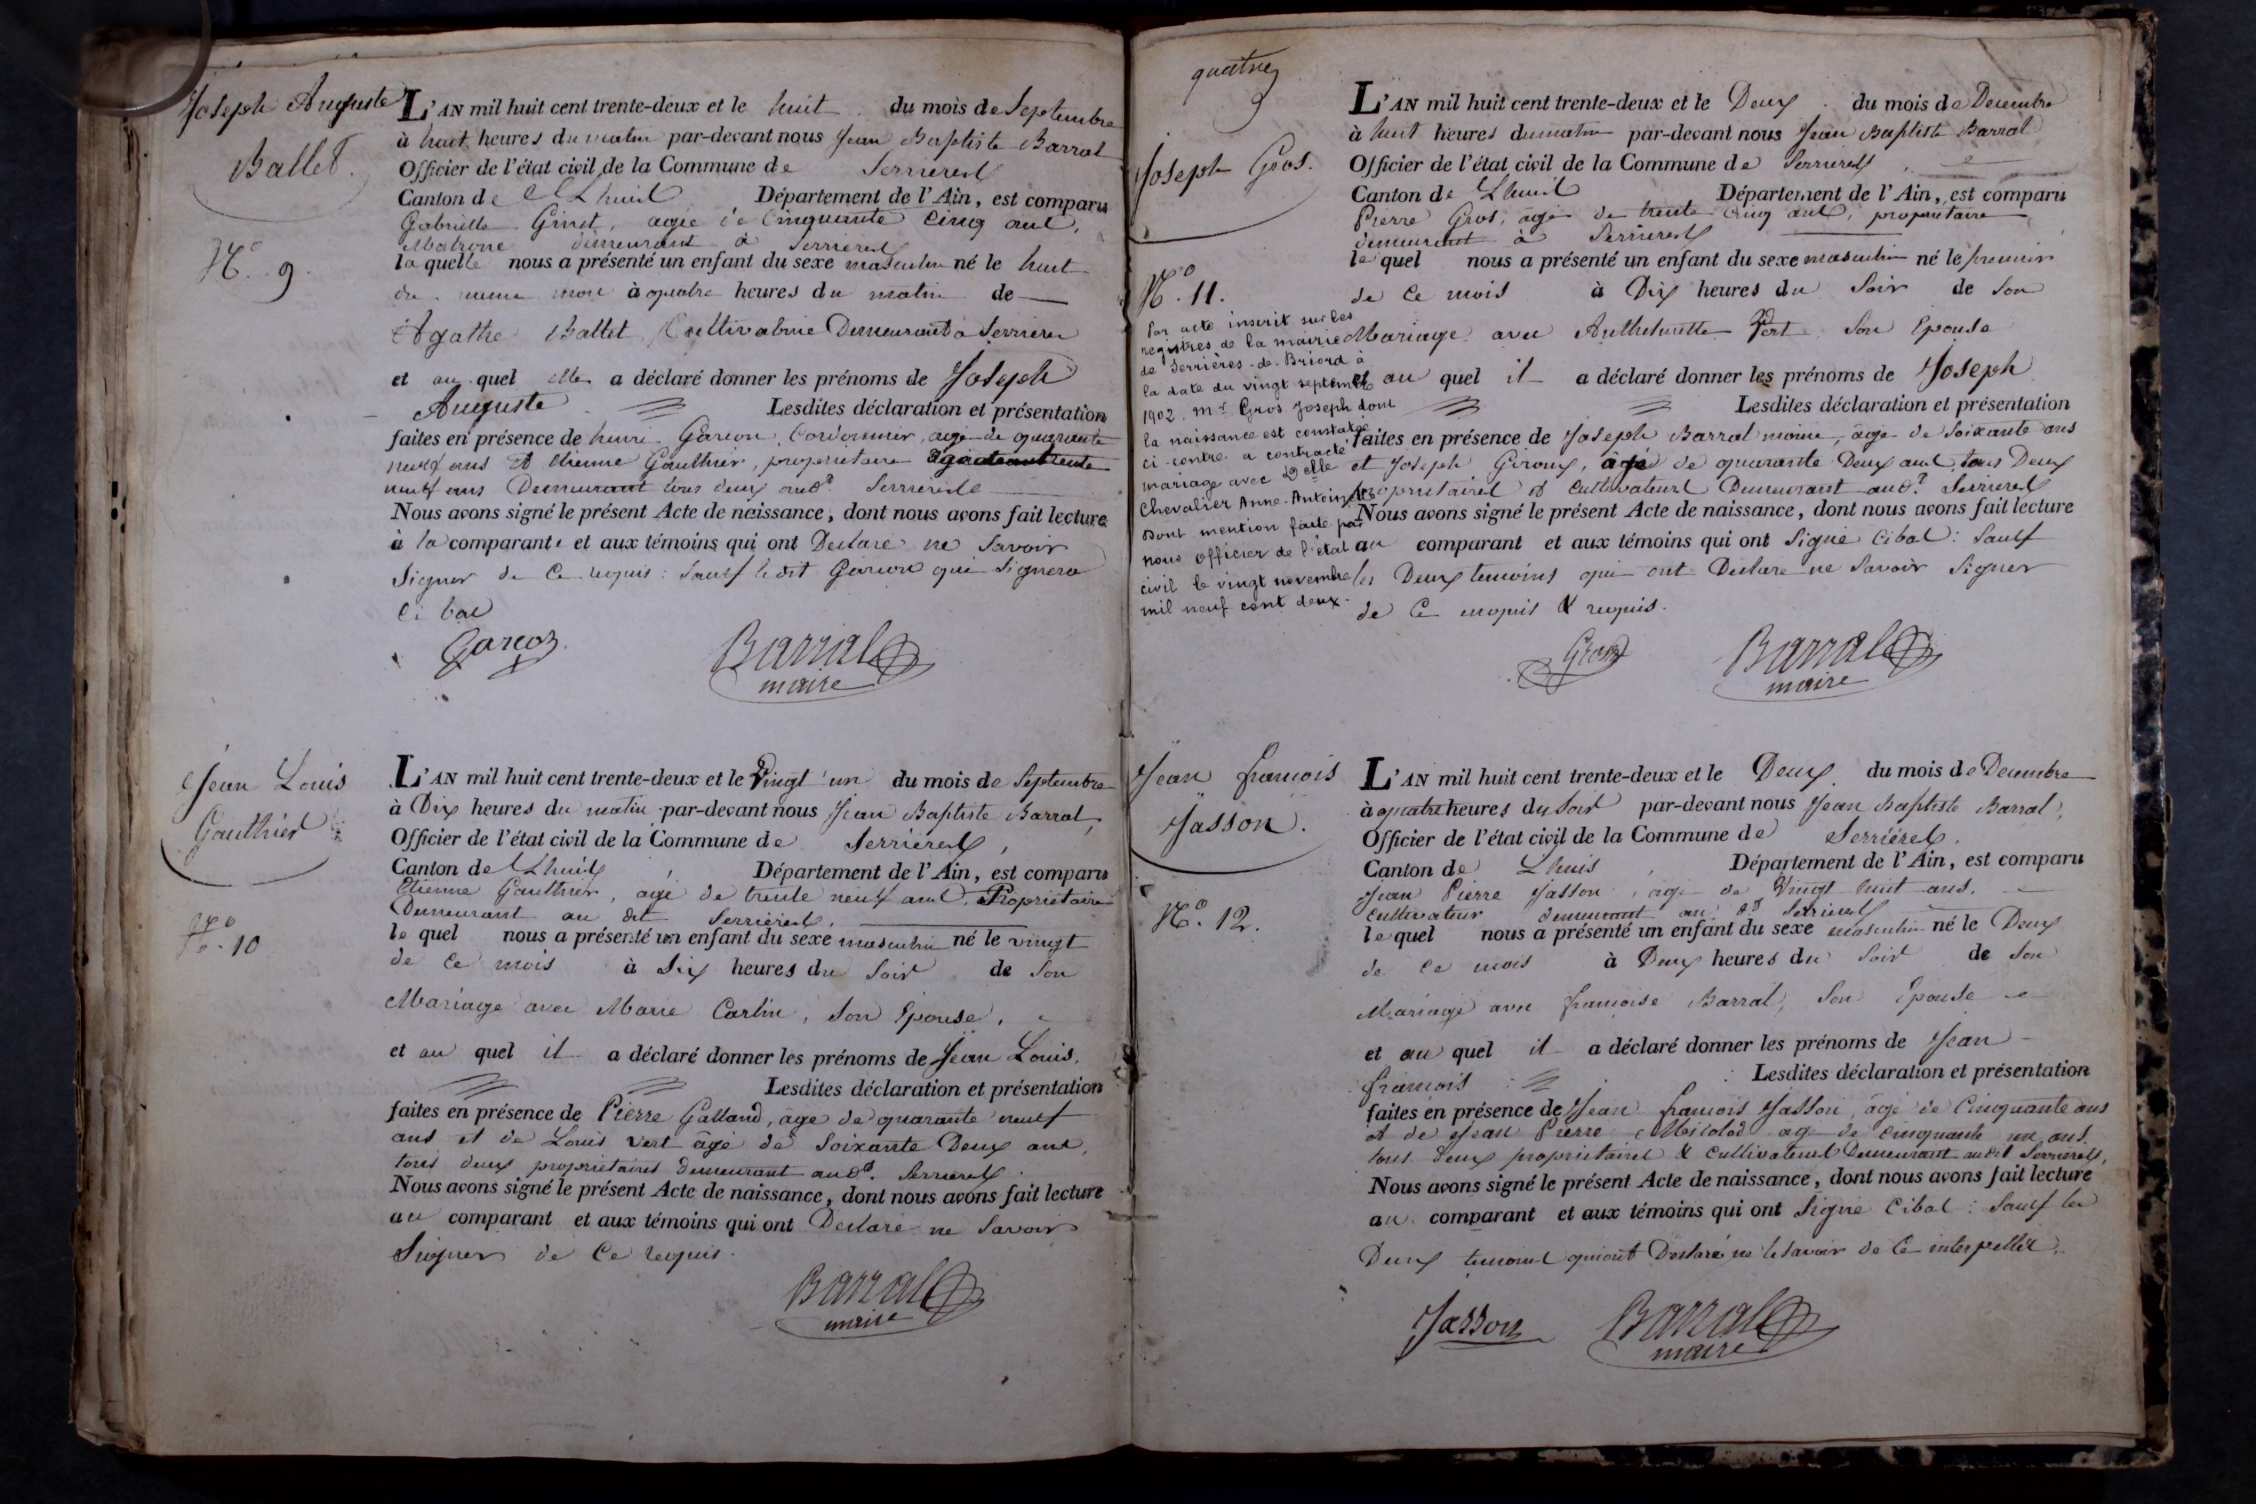 Joseph Auguste
Ballet.
N.o 9.
L'AN mil huit cent trente-deux et le huit du mois de Septembre
à huit heures du matin par-devant nous Jean Baptiste Barral
Officier de l'état civil de la Commune de Serrieres
Canton de Lhuis Département de l'Ain, est comparu
Gabrielle Ginet, agée de Cinquante Cinq ans,
Matrone demeurant à Serrieres
la quelle nous a présenté un enfant du sexe masculin né le huit
du même mois à quatre heures du matin de
Agathe Ballet Cultivatrice Demeurant a Serrieres
et au quel elle a déclaré donner les prénoms de Joseph
Auguste Lesdites déclaration et présentation
faites en présence de henri Garcon, Cordonnier, agé de quarante
neuf ans et Etienne Gauthier, proprietaire agé de trente
neuf ans Demeurant tous deux aud.t Serrieres
Nous avons signé le présent Acte de naissance, dont nous avons fait lecture
à la comparante et aux témoins qui ont Declaré ne Savoir
Signer de Ce requis: Sauf ledit Garcon qui Signera
Ci bas
Garcon
Barral
maire
Jean Louis
Gauthier
N.o 10
L'AN mil huit cent trente-deux et le Vingt un du mois de Septembre
à Dix heures du matin par-devant nous Jean Baptiste Barral,
Officier de l'état civil de la Commune de Serrieres,
Canton de Lhuis, Département de l'Ain, est comparu
Etienne Gauthier, agé de trente neuf ans, Propriétaire
Demeurant au dit Serrieres,
le quel nous a présenté un enfant du sexe masculin né le vingt
de Ce mois à Six heures du Soir de Son
Mariage avec Marie Carlin, Son Epouse,
et au quel il a déclaré donner les prénoms de Jean Louis,
Lesdites déclaration et présentation
faites en présence de Pierre Galland, âgé de quarante neuf
ans et de Louis Vert âgé de Soixante Deux ans,
tous deux propriétaires demeurant aud.t Serrieres
Nous avons signé le présent Acte de naissance, dont nous avons fait lecture
au comparant et aux témoins qui ont Declaré ne Savoir
Signer de Ce requis.
Barral
maire
quatre
Joseph Gros.
N.o 11.
Par acte inscrit sur les
registres de la mairie
de Serrières-de-Briord à
la date du vingt septembre
1902. Mr Gros Joseph dont
la naissance est constatée
ci-contre a contracté
mariage avec Delle
Chevalier Anne-Antoinette
Dont mention faite par
nous Officier de l'état
civil le vingt novembre
mil neuf cent deux.
L'AN mil huit cent trente-deux et le Deux du mois de Decembre
à huit heures du matin par-devant nous Jean Baptiste Barral
Officier de l'état civil de la Commune de Serrieres
Canton de Lhuis Département de l'Ain, est comparu
Pierre Gros, âgé de trente Cinq ans, propriétaire
demeurant à Serrieres
le quel nous a présenté un enfant du sexe masculin né le premier
de Ce mois à Dix heures du Soir de Son
Mariage avec Anthelmette Son Epouse
et au quel il a déclaré donner les prénoms de Joseph
Lesdites déclaration et présentation
faites en présence de Joseph Barral âgé de Soixante ans
et Joseph Giroux, âgé de quarante Deux ans, tous Deux
proprietaires et Cultivateurs Demeurant aud.t Serrieres
Nous avons signé le présent Acte de naissance, dont nous avons fait lecture
au comparant et aux témoins qui ont Signé Cibat: Sauf
les Deux temoins qui ont Declaré ne Savoir Signer
de Ce requis.
Gros
Barral
maire
Jean françois
Jasson.
N.o 12.
L'AN mil huit cent trente-deux et le Deux du mois de Decembre
à quatre heures du Soir par-devant nous Jean Baptiste Barral,
Officier de l'état civil de la Commune de Serriéres,
Canton de Lhuis, Département de l'Ain, est comparu
Jean Pierre Jasson, âgé de Vingt huit ans,
Cultivateur demeurant au dt Serrieres
le quel nous a présenté un enfant du sexe masculin né le Deux
de Ce mois à Deux heures du Soir de Son
Mariage avec françoise Barral, Son Epouse
et au quel il a déclaré donner les prénoms de Jean
françois Lesdites déclaration et présentation
faites en présence de Jean françois Jasson, âgé de Cinquante ans
et de Jean Pierre agé de Cinquante un ans
tous Deux proprietaires & Cultivateurs Demeurant audit Serrieres,
Nous avons signé le présent Acte de naissance, dont nous avons fait lecture
au comparant et aux témoins qui ont Signé Cibat: Sauf les
Deux temoins qui ont Declaré ne le Savoir de Ce interpellés.
Jasson
Barral
maire